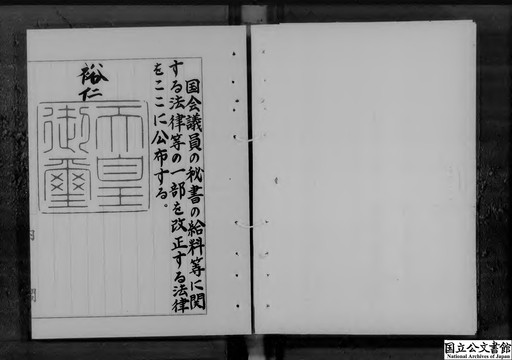 国会議員の秘書の給料等に関
する法律等の一部を改正する法律
をここに公布する。
裕仁
天皇
御璽
国立公文書館
National Archives of Japan